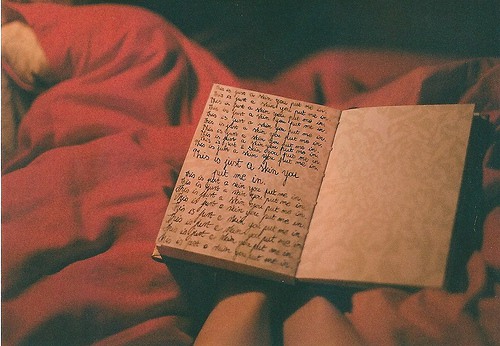 This is just a skin you put me in
This is just a skin you put me in.
This is just a skin you put me in.
This is just a skin you put me in.
This is just a skin you put me in.
This is just a skin you put me in.
This is just a skin you put me in.
This is just a skin you put me in.
This is just a skin you
put me in.
This is just a skin you put me in.
This is just a skin you put me in.
This is just a skin you put me in.
This is just a skin you put me in.
This is just a skin you put me in.
This is just a skin you put me in.
This is just a skin you put me in.